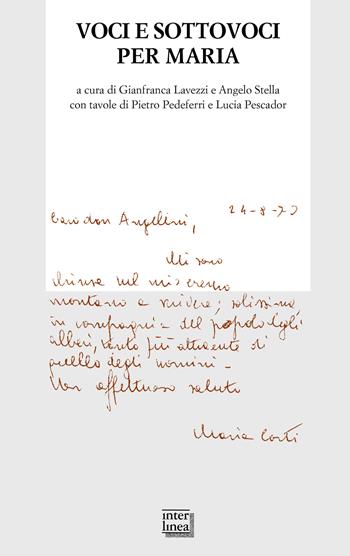 VOCI E SOTTOVOCI
PER MARIA
a cura di Gianfranca Lavezzi e Angelo Stella
con tavole di Pietro Pedeferri e Lucia Pescador
Caro don Angelini,
24-8-73
Mi sono
chiusa nel mio eremo
montano a scrivere; solissima,
in compagnia del popolo degli
alberi, tanto più attraente di
quello degli uomini.
Un affettuoso saluto
Maria Corti
inter
linea